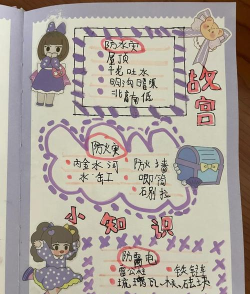 防水灾
屋顶
千龙吐水
明沟暗渠
北高南低
故宫
防火灾
内金水河 防火墙
水缸 唧筒
石别拉
小知识
防雷雨
琉璃瓦